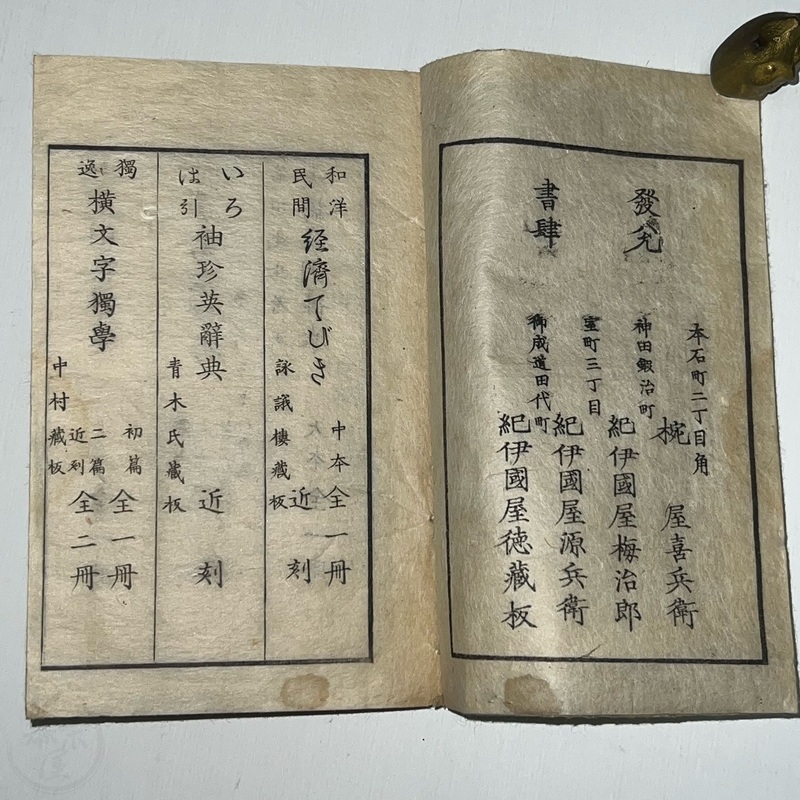 發兌
書肆
本石町二丁目角
椀屋喜兵衛
神田鍜治町
紀伊國屋梅治郎
室町三丁目
紀伊國屋源兵衛
御成道田代町
紀伊國屋徳藏板
和洋
民間
経濟てびき
中本全一冊
詠議樓藏板
近刻
いろ
は引
袖珍英辭典
青木氏藏板
近刻
獨
逸
横文字獨學
初篇
全一冊
二篇
近刻
全二冊
中村藏板